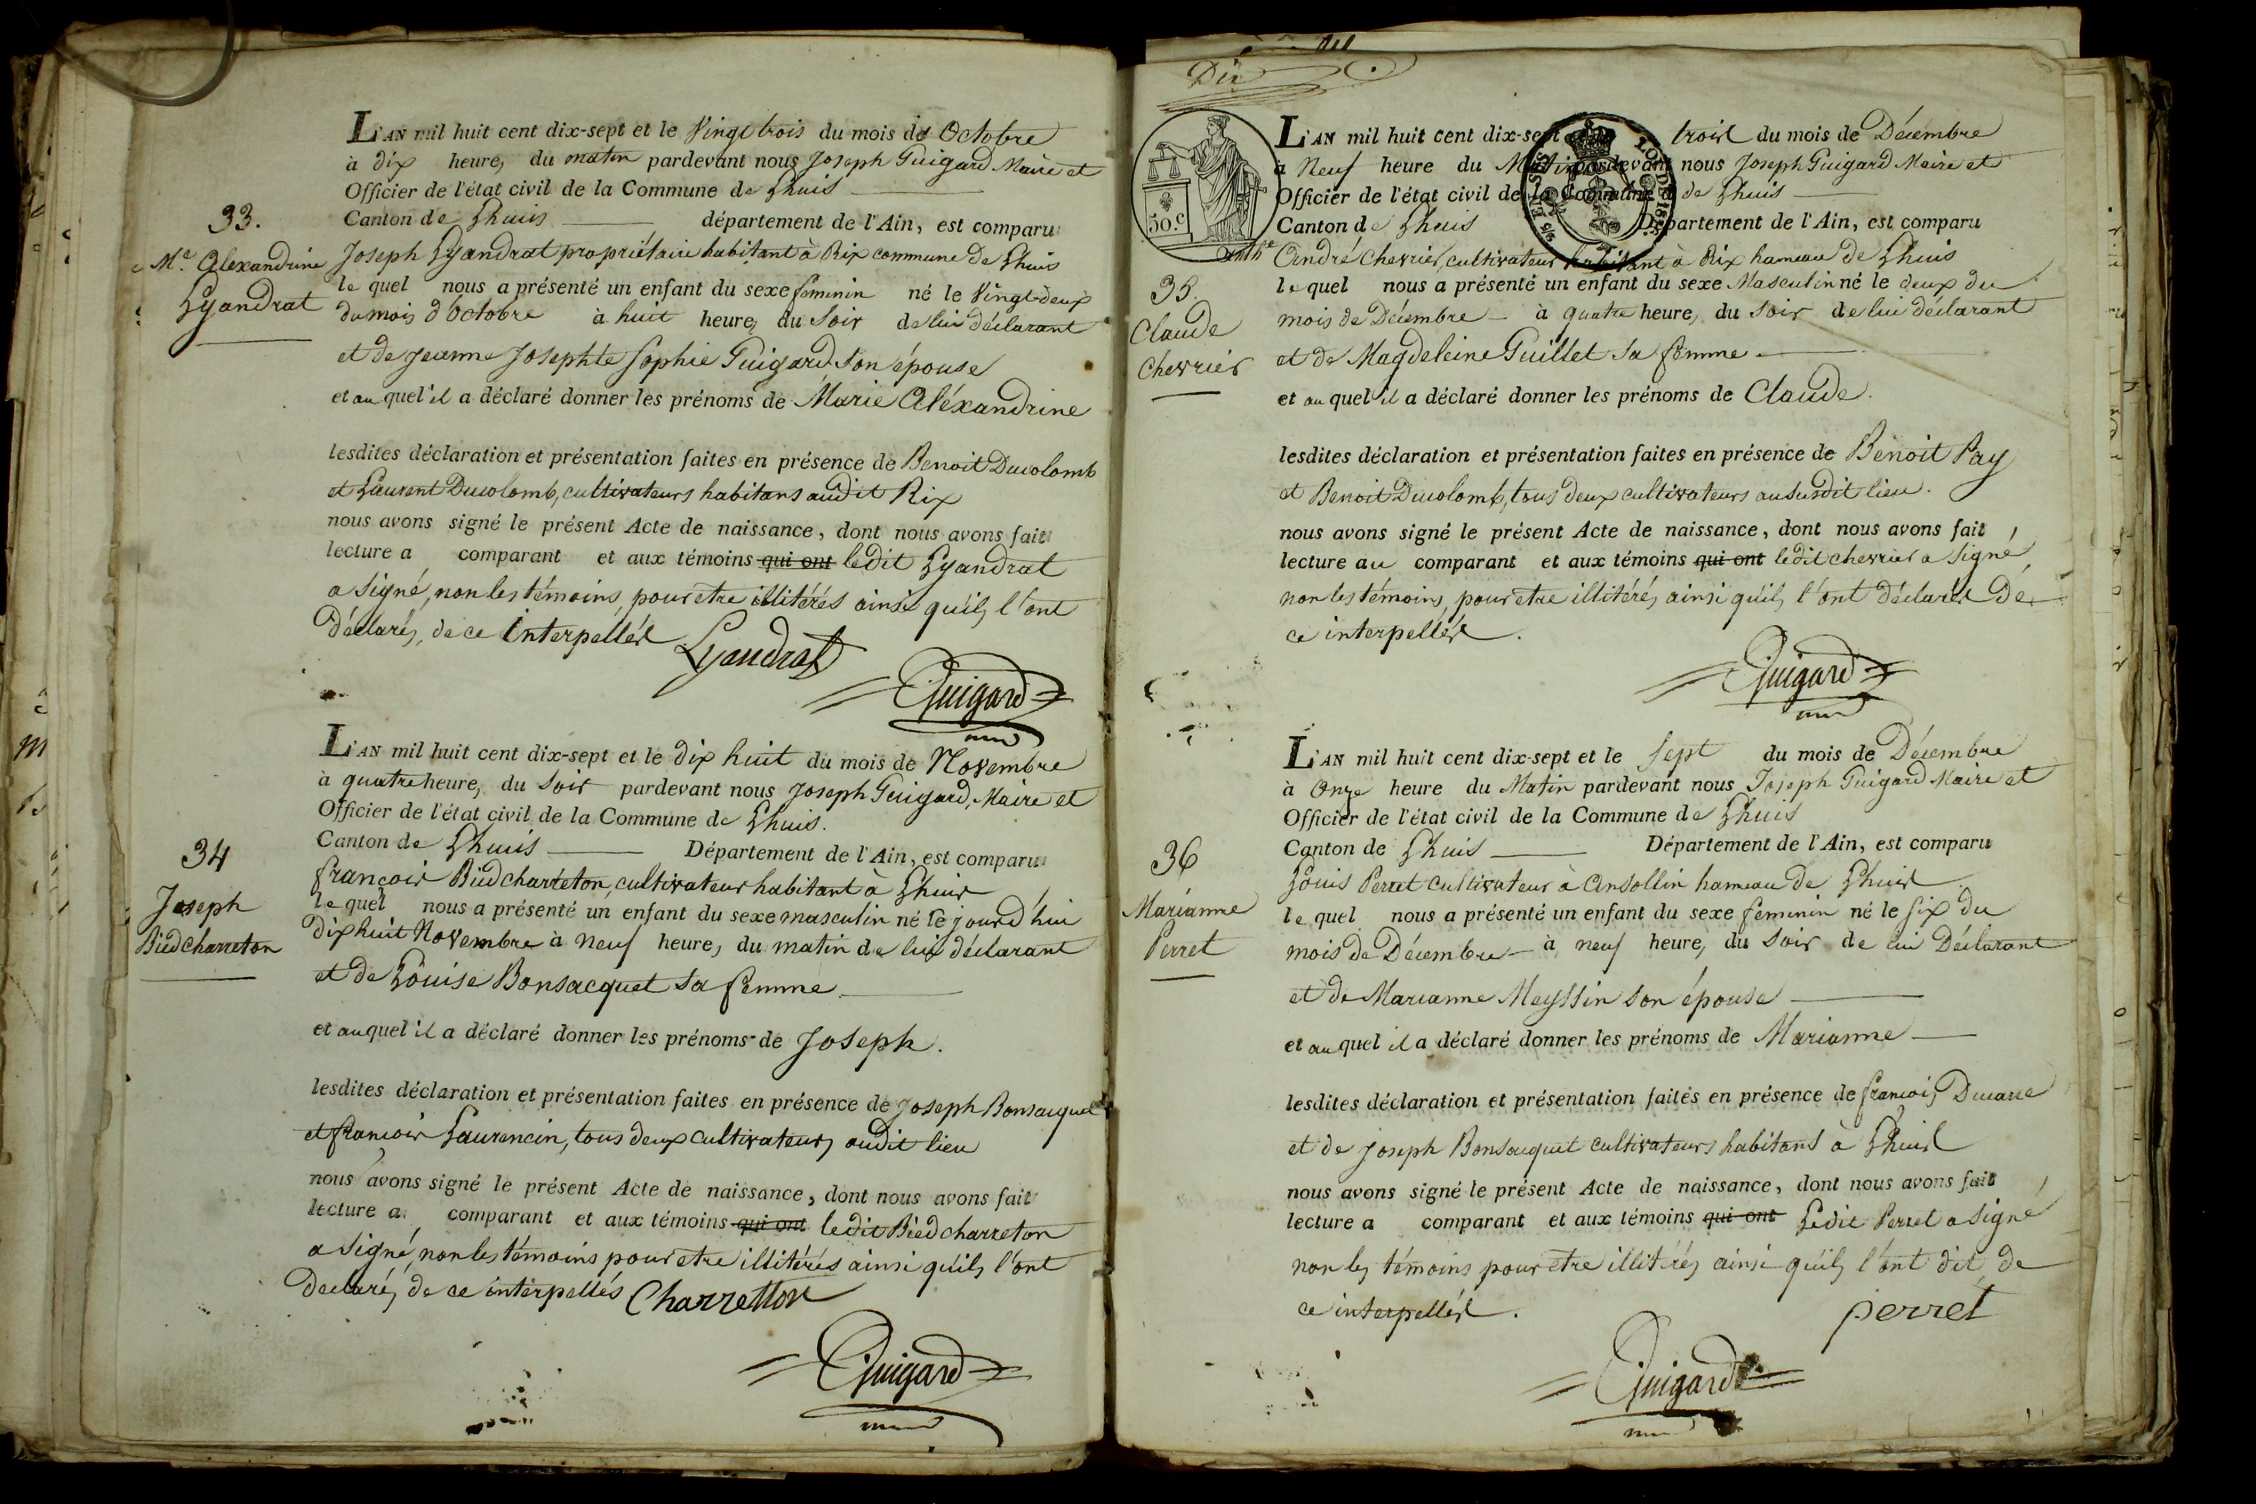 33.
Me Alexandrine
Lyandrat
L'AN mil huit cent dix-sept et le Vingt trois du mois de Octobre
à dix heures du matin pardevant nous Joseph Guigard Maire et
Officier de l'état civil de la Commune de Lhuis
Canton de Lhuis département de l'Ain, est comparu
Joseph Lyandrat propriétaire habitant à Rix commune de Lhuis
lequel nous a présenté un enfant du sexe feminin né le Vingt-deux
du mois d'Octobre à huit heures du Soir de lui déclarant
et de Jeanne Josephte Sophie Guigard son épouse
et auquel il a déclaré donner les prénoms de Marie Aléxandrine
lesdites déclaration et présentation faites en présence de Benoit Ducolomb
et Laurent Ducolomb, cultivateurs habitans audit Rix
nous avons signé le présent Acte de naissance, dont nous avons fait
lecture a comparant et aux témoins qui ont ledit Lyandrat
a Signé, non les témoins, pour etre illitérés ainsi qu'ils l'ont
déclarés, de ce interpellés Lyandrat
Guigard
34
Joseph
Biedcharreton
L'AN mil huit cent dix-sept et le dix huit du mois de Novembre
à quatre heures du Soir pardevant nous Joseph Guigard, Maire et
Officier de l'état civil de la Commune de Lhuis.
Canton de Lhuis Département de l'Ain, est comparu
françois Biedcharreton, cultivateur habitant à Lhuis
lequel nous a présenté un enfant du sexe masculin né le jourd'hui
dix huit Novembre à neuf heures du matin de lui déclarant
et de Louise Bonsacquet sa femme
et auquel il a déclaré donner les prénoms de Joseph.
lesdites déclaration et présentation faites en présence de Joseph Bonsacquet
et françois Laurencin, tous deux cultivateurs audit lieu
nous avons signé le présent Acte de naissance, dont nous avons fait
lecture a comparant et aux témoins qui ont ledit Biedcharreton
a Signé, non les témoins pour etre illitérés ainsi qu'ils l'ont
declarés de ce interpellés Charretton
Guigard
Dix
50 c.
LOI DE 1816
35.
Claude
Chevrier
L'AN mil huit cent dix-sept trois du mois de Décembre
à Neuf heure du Matin pardevant nous Joseph Guigard Maire et
Officier de l'état civil de la Commune de Lhuis
Canton de Lhuis Département de l'Ain, est comparu
André Chevrier, cultivateur habitant à Rix hameau de Lhuis
lequel nous a présenté un enfant du sexe Masculin né le deux du
mois de Décembre à quatre heures du Soir de lui déclarant
et de Magdeleine Guillet sa femme
et auquel il a déclaré donner les prénoms de Claude.
lesdites déclaration et présentation faites en présence de Benoit Pay
et Benoit Ducolomb, tous deux cultivateurs au susdit lieu.
nous avons signé le présent Acte de naissance, dont nous avons fait
lecture au comparant et aux témoins qui ont ledit chevrier a Signé,
non les témoins, pour etre illitérés ainsi qu'ils l'ont déclarés De
ce interpellés.
Guigard
36
Marianne
Perret
L'AN mil huit cent dix-sept et le Sept du mois de Décembre
à Onze heure du Matin pardevant nous Joseph Guigard Maire et
Officier de l'état civil de la Commune de Lhuis
Canton de Lhuis Département de l'Ain, est comparu
Louis Perret cultivateur à Ansollin hameau de Lhuis
lequel nous a présenté un enfant du sexe feminin né le Six du
mois de Décembre à neuf heures du Soir de lui Déclarant
et de Marianne Meyssin son épouse
et auquel il a déclaré donner les prénoms de Marianne
lesdites déclaration et présentation faites en présence de francois Ducarre
et de Joseph Bonsacquet cultivateurs habitans à Lhuis
nous avons signé le présent Acte de naissance, dont nous avons fait
lecture a comparant et aux témoins qui ont Ledit Perret a Signé
non les témoins pour etre illitérés ainsi qu'ils l'ont dit, de
ce interpellés. perret
Guigard